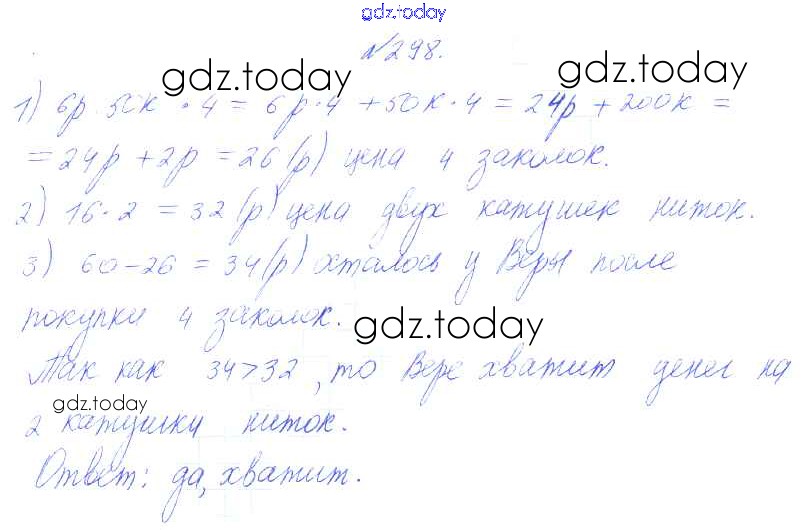 gdz.today
№298.
gdz.today gdz.today
1) 6р 50к · 4 = 6р·4 + 50к·4 = 24р + 200к =
= 24р + 2р = 26 (р) цена 4 заколок.
2) 16·2 = 32 (р) цена двух катушек ниток.
3) 60-26 = 34 (р) осталось у Веры после
покупки 4 заколок.
gdz.today
Так как 34>32, то Вере хватит денег на
gdz.today
2 катушки ниток.
Ответ: да, хватит.